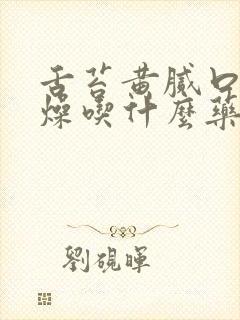 舌苔黄腻口
燥喫什麼藥
劉硯暉